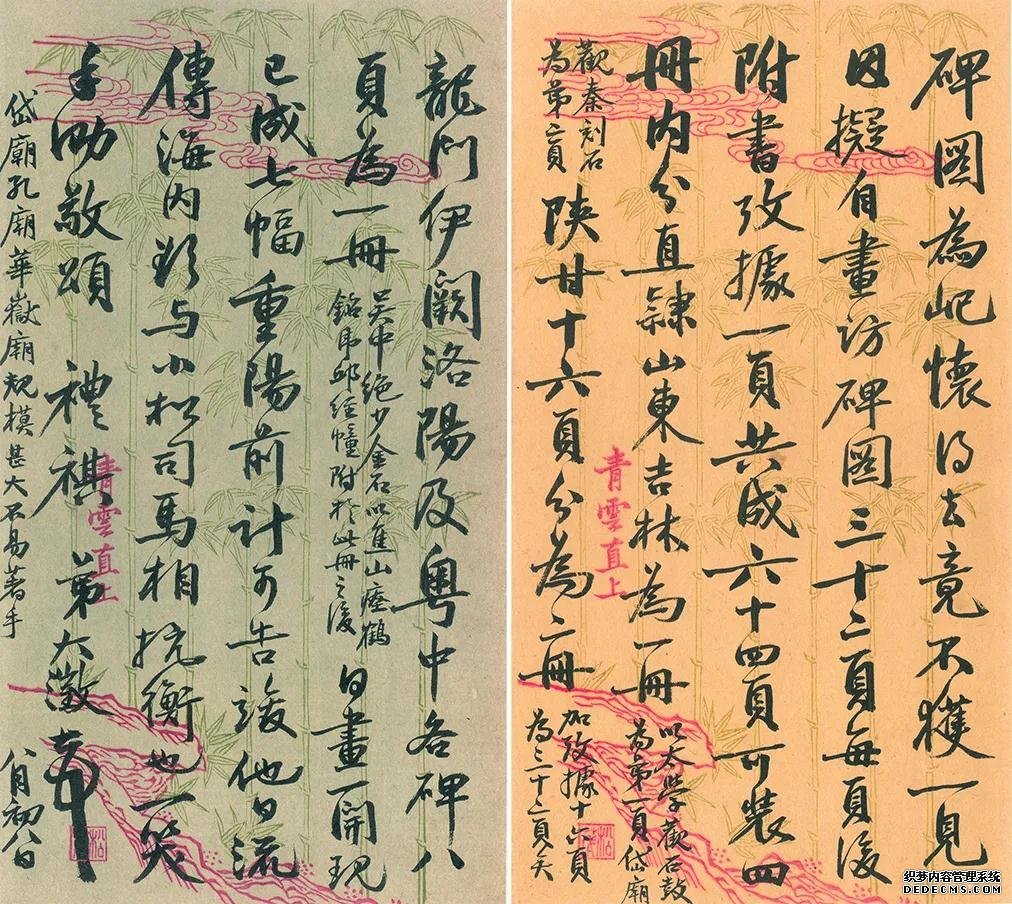 碑圖為屺懷得去竟不獲一見
因擬自畫訪碑圖三十二頁每頁後
附書攷據一頁共成六十四頁可裝四
冊內分直隸山東吉林為一冊
以太學觀石鼓
為第一頁岱廟
觀秦刻石
為第二頁
陝甘十六頁分為二冊
加攷據十六頁
為三十二頁矣
龍門伊闕洛陽及粵中各碑八
頁為一冊
吳中絕少金石以焦山瘞鶴
銘虎邱經幢附於此冊之後
日畫一開現
已成七幅重陽前計可告竣他日流
傳海內欲与小松司馬相抗衡也一笑
手泐敬頌 禮祺 弟大澂頓首
八月初八日
岱廟孔廟華嶽廟規模甚大不易著手
青雲直上
青雲直上
织梦内容管理系统
DEDECMS.COM